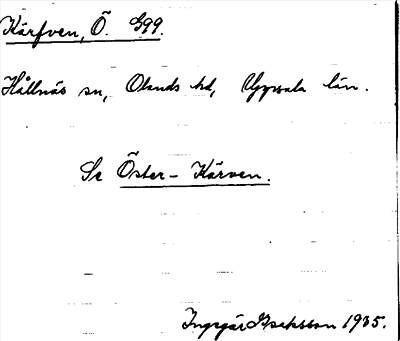 Kärfven, Ö. G99.
Hållnäs sn, Olands hd, Uppsala län.
Se Öster-Kärven.
Ingegär Isaksson 1935.